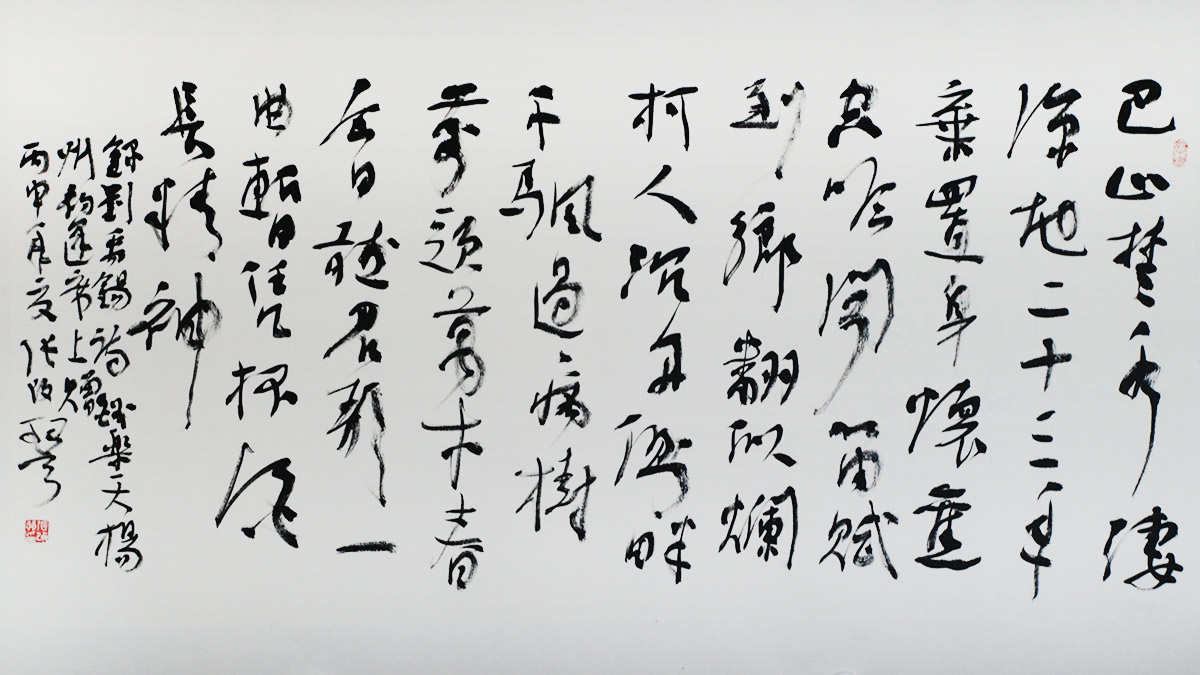 巴山楚水淒
涼地二十三年
棄置身懷舊
空吟聞笛賦
到鄉翻似爛
柯人沉舟側畔
千颿過病樹
前頭萬木春
今日聽君歌一
曲暫凭杯酒
長精神
錄劉禹錫詩酬樂天揚
州初逢席上贈
丙申年夏